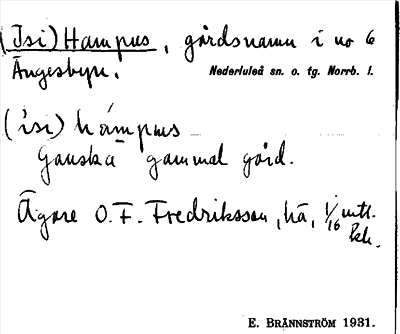 (Isi) Hampus, gårdsnamn i no 6
Ängesbyn. Nederluleå sn. o. tg. Norrb. l.
(isi) hampus
Ganska gammal gård.
Ägare O. F. Fredriksson, hä, 1/16 mtl.